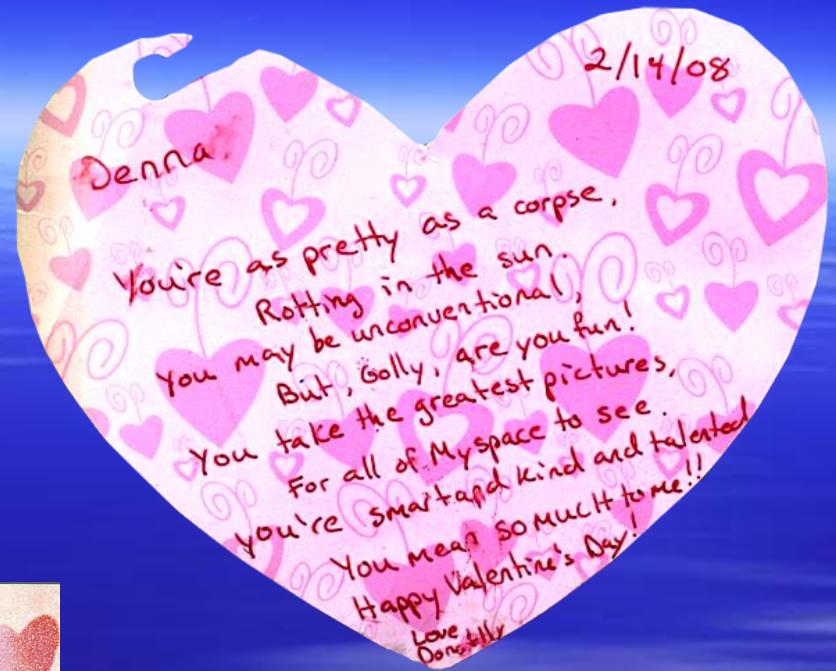 2/14/08
Denna
You're as pretty as a corpse,
Rotting in the sun.
You may be unconventional,
But, Golly, are you fun!
You take the greatest pictures,
For all of Myspace to see.
You're smart and kind and talented
You mean SO MUCH to me!!
Happy Valentine's Day!
Love